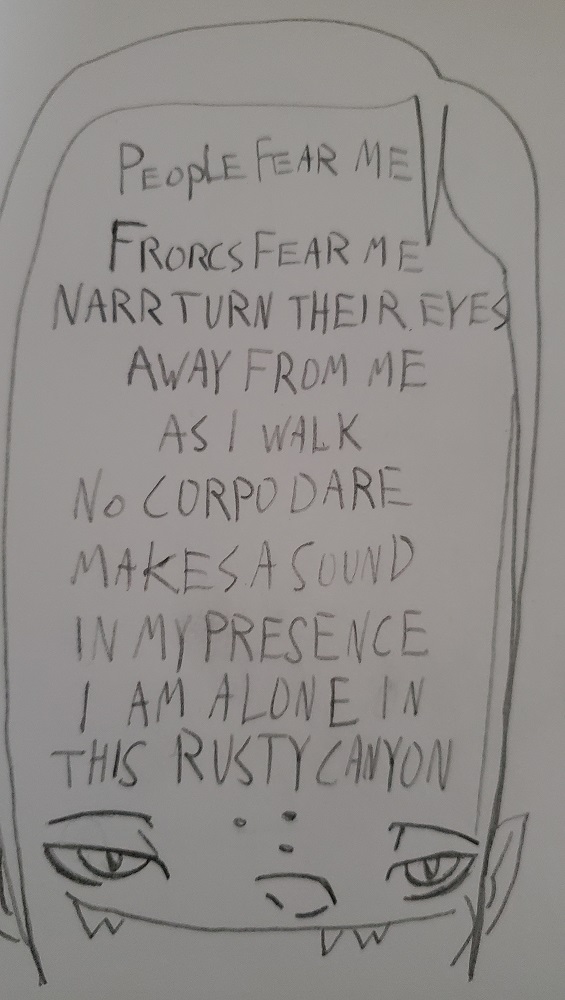 PEOPLE FEAR ME
FRORCS FEAR ME
NARR TURN THEIR EYES
AWAY FROM ME
AS I WALK
NO CORPO DARE
MAKES A SOUND
IN MY PRESENCE
I AM ALONE IN
THIS RUSTY CANYON